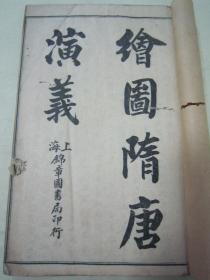 繪圖隋唐
演義
上海錦章圖書局印行